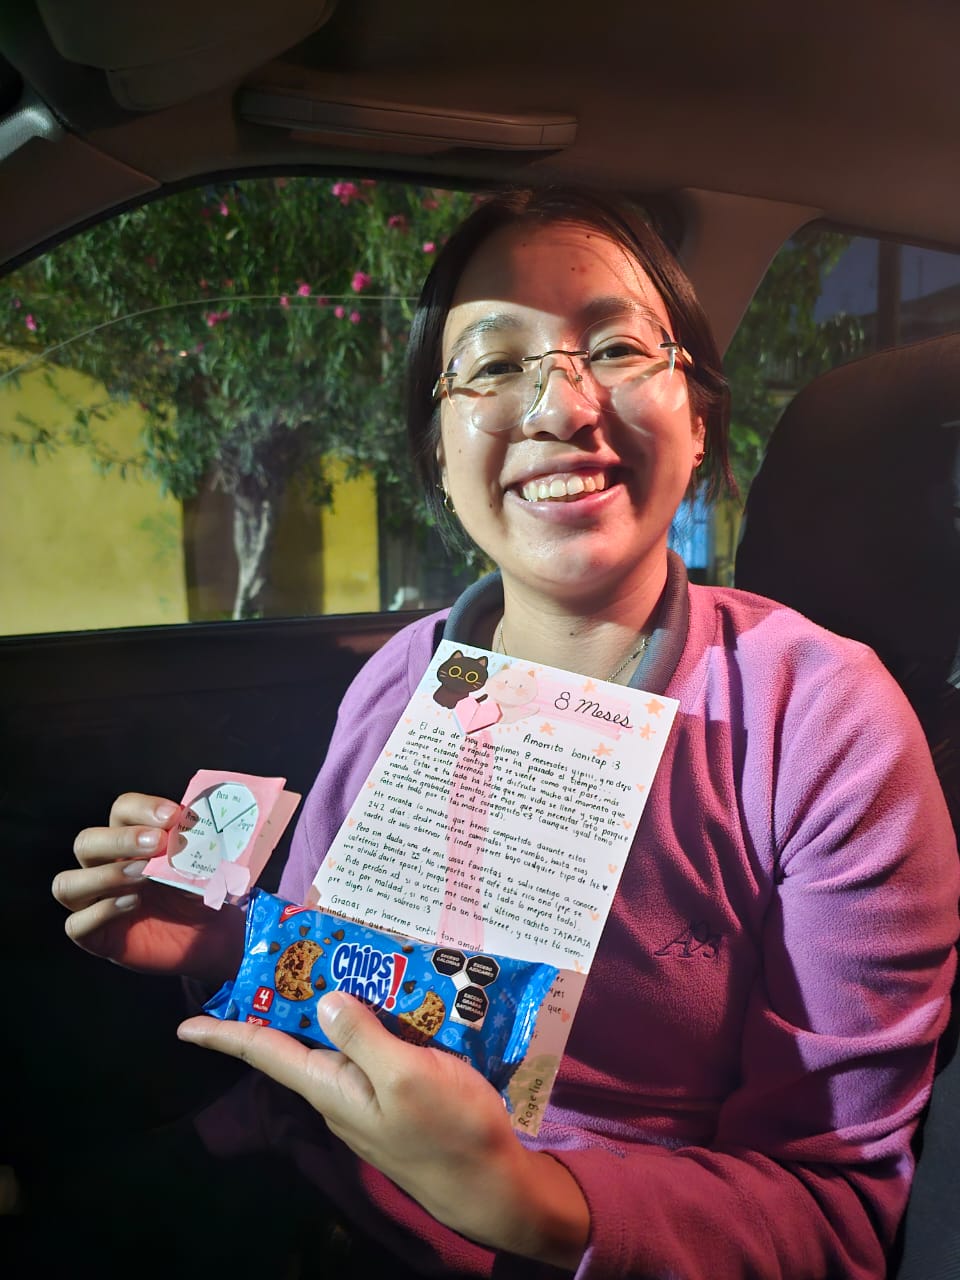 8 Meses
Amorito bonitap :3
El día de hoy cumplimos 8 mesesotes yipiii, y no dejo
de pensar en lo rápido que ha pasado el tiempo...
aunque estando contigo no se siente como que pase, más
bien se siente hermoso y se disfruta mucho al momento que
ríes. Estar a tu lado ha hecho que mi vida se llene y siga lle-
nando de momentos bonitos, de esos que no necesitan foto porque
se quedan grabados en el corazoncito <3 (aunque igual tomo
foto de todo por si las moscas xd).
Me encanta lo mucho que hemos compartido durante estos
242 días: desde nuestras caminatas sin rumbo, hasta esas
tardes de solo observar lo linda que eres bajo cualquier tipo de luz ♥
Pero sin duda, una de mis cosas favoritas es salir contigo a conocer
cafeterías bonitas. No importa si el café está rico o no (jeje se
me olvidó darle space), porque estar a tu lado lo mejora todo.
Pido perdón xd si a veces me como el último cachito JAJAJAJA
No es por maldad, si no me da un hambreee, y es que tú siem-
pre eliges lo más sabroso :3
Gracias por hacerme sentir tan amado
que
Rogelio
Para mi
Amorcito
hermosa
- De
Rogelio
Chips
Ahoy!
4
EXCESO
CALORÍAS
EXCESO
AZÚCARES
EXCESO
GRASAS
SATURADAS